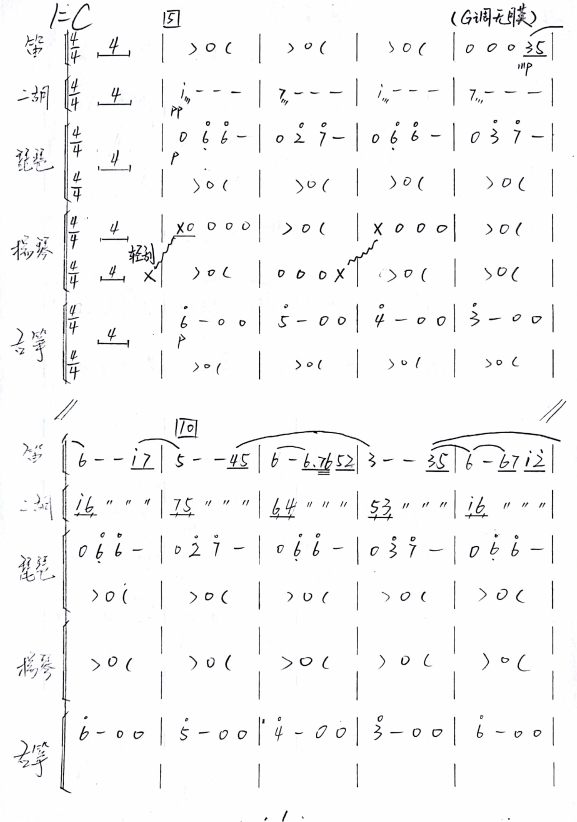 1=C 5 (G调无膜)
笛 4/4 4 | >0< | >0< | >0< | 0 0 0 35 |
mp
二胡 4/4 4 | i--- | 7--- | i--- | 7--- |
pp
琵琶 4/4 4 | 0 6 6 - | 0 2 7 - | 0 6 6 - | 0 3 7 - |
p
4/4 | >0< | >0< | >0< | >0< |
扬琴 4/4 4 | X0 0 0 0 | >0< | X 0 0 0 | >0< |
轻刮
4/4 4 X | >0< | 0 0 0 X | >0< | >0< |
古筝 4/4 4 | 6 - 0 0 | 5 - 0 0 | 4 - 0 0 | 3 - 0 0 |
p
4/4 | >0< | >0< | >0< | >0< |
10
笛 6 - - i7 | 5 - - 45 | 6 - 6.76 52 | 3 - - 35 | 6 - 67 i2 |
二胡 i6 " " " | 75 " " " | 64 " " " | 53 " " " | i6 " " " |
琵琶 0 6 6 - | 0 2 7 - | 0 6 6 - | 0 3 7 - | 0 6 6 - |
>0< | >0< | >0< | >0< | >0< |
扬琴 >0< | >0< | >0< | >0< | >0< |
古筝 6 - 0 0 | 5 - 0 0 | 4 - 0 0 | 3 - 0 0 | 6 - 0 0 |
. 1 .